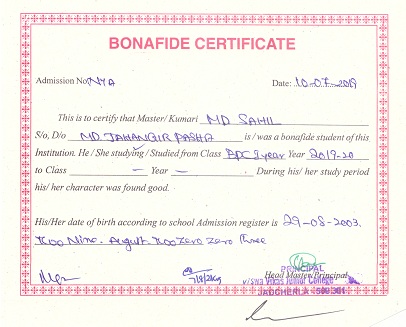 BONAFIDE CERTIFICATE
Admission No. NYA Date: 10-07-2019
This is to certify that Master/ Kumari MD SAHIL
S/o, D/o MD. JAHANGIR PASHA is / was a bonafide student of this
Institution. He / She studying / Studied from Class BPC I year Year 2019-20
to Class — Year — . During his/ her study period
his/ her character was found good.
His/Her date of birth according to school Admission register is 29-08-2003.
Two Nine. August Two zero zero three
Head Master/Principal
PRINCIPAL
Viswa Vikas Junior College
JADCHERLA - 509 301